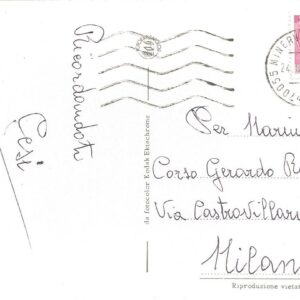 Ricordandoti
Gesi
da fotocolor Kodak Ektachrome
70055 MINERV
24.
Per Mariu
Corso Gerardo R
Via Castrovillari
Milan
Riproduzione vietat